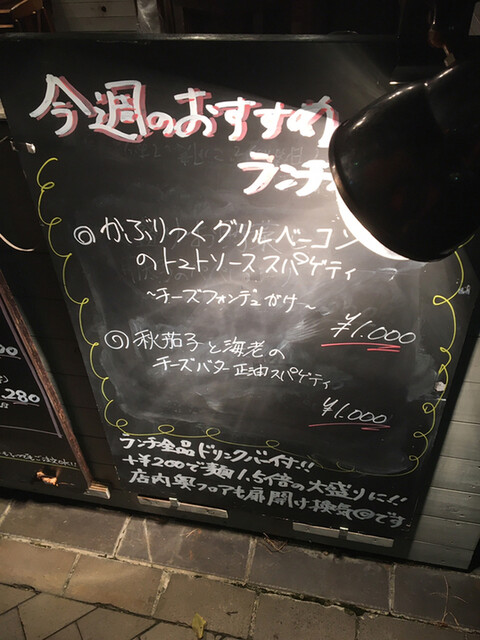 今週のおすすめ
ランチ
◎かぶりつくグリルベーコン
のトマトソーススパゲティ
~チーズフォンデュかけ~
¥1.000
◎秋茄子と海老の
チーズバター正油スパゲティ
¥1.000
ランチ全品ドリンクバー付!!
+¥200で麺1.5倍の大盛りに!!
店内奥フロアも扉開け換気◎です。
280